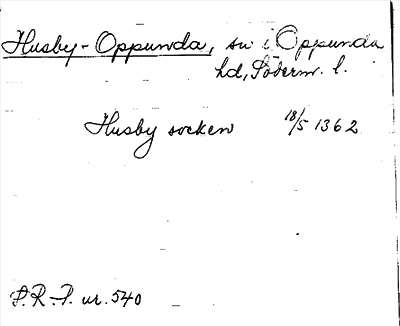 Husby-Oppunda, sn i Oppunda
hd, Söderm. l.
Husby socken 18/5 1362
S.R.-P. nr. 540